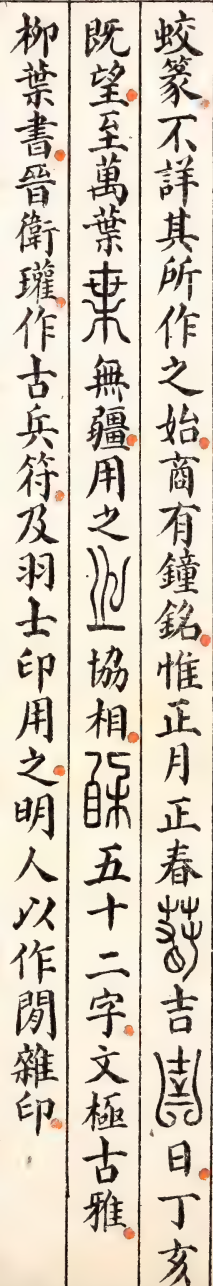 蛟篆不詳其所作之始商有鐘銘惟正月正春吉日丁亥
既望至萬葉無疆用之協相五十二字文極古雅
柳葉書晉衛瓘作古兵符及羽士印用之明人以作閒雜印